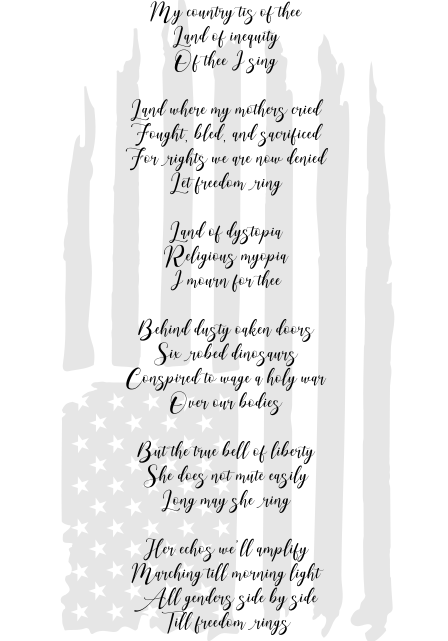 My country tis of thee
Land of inequity
Of thee I sing
Land where my mothers cried
Fought, bled, and sacrificed
For rights we are now denied
Let freedom ring
Land of dystopia
Religious myopia
I mourn for thee
Behind dusty oaken doors
Six robed dinosaurs
Conspired to wage a holy war
Over our bodies
But the true bell of liberty
She does not mute easily
Long may she ring
Her echos we'll amplify
Marching till morning light
All genders side by side
Till freedom rings